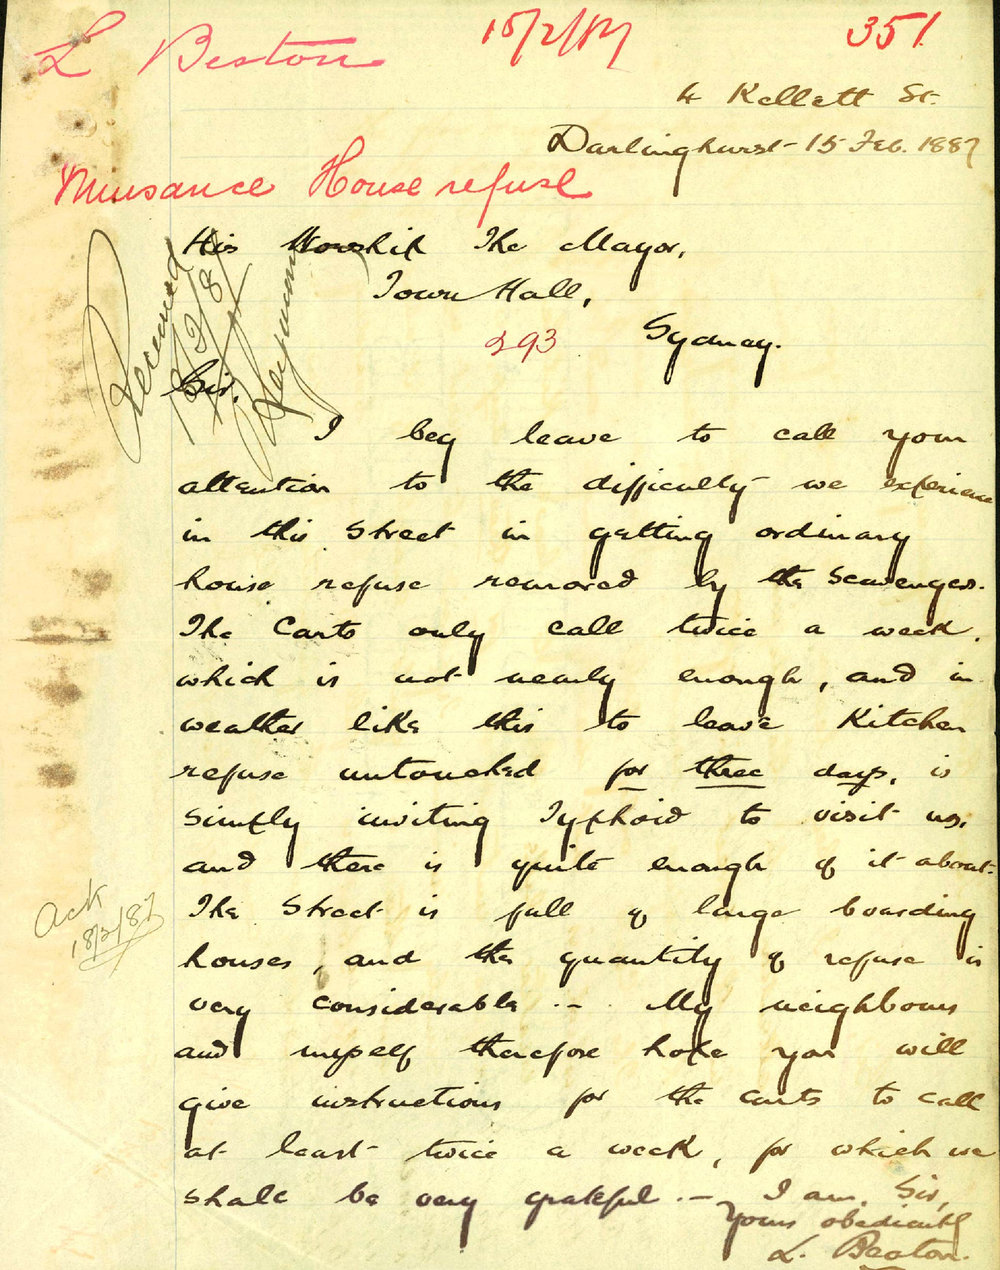 L Beston 15/2/87 351
4 Kellett St.
Darlinghurst - 15 Feb. 1887
Nuisance House refuse
His Worship The Mayor,
Town Hall,
293 Sydney.
Received
Sir.
I beg leave to call your
attention to the difficulty we experience
in this Street in getting ordinary
house refuse removed by the Scavengers.
The Carts only call twice a week,
which is not nearly enough, and in
weather like this to leave Kitchen
refuse untouched for three days, is
simply inviting Typhoid to visit us,
and there is quite enough of it about.
Ack
18/2/87
The Street is full of large boarding
houses, and the quantity of refuse is
very considerable .- My neighbours
and myself therefore hope you will
give instructions for the carts to call
at least twice a week, for which we
shall be very grateful .- I am, Sir,
Yours obediently
L. Beston.